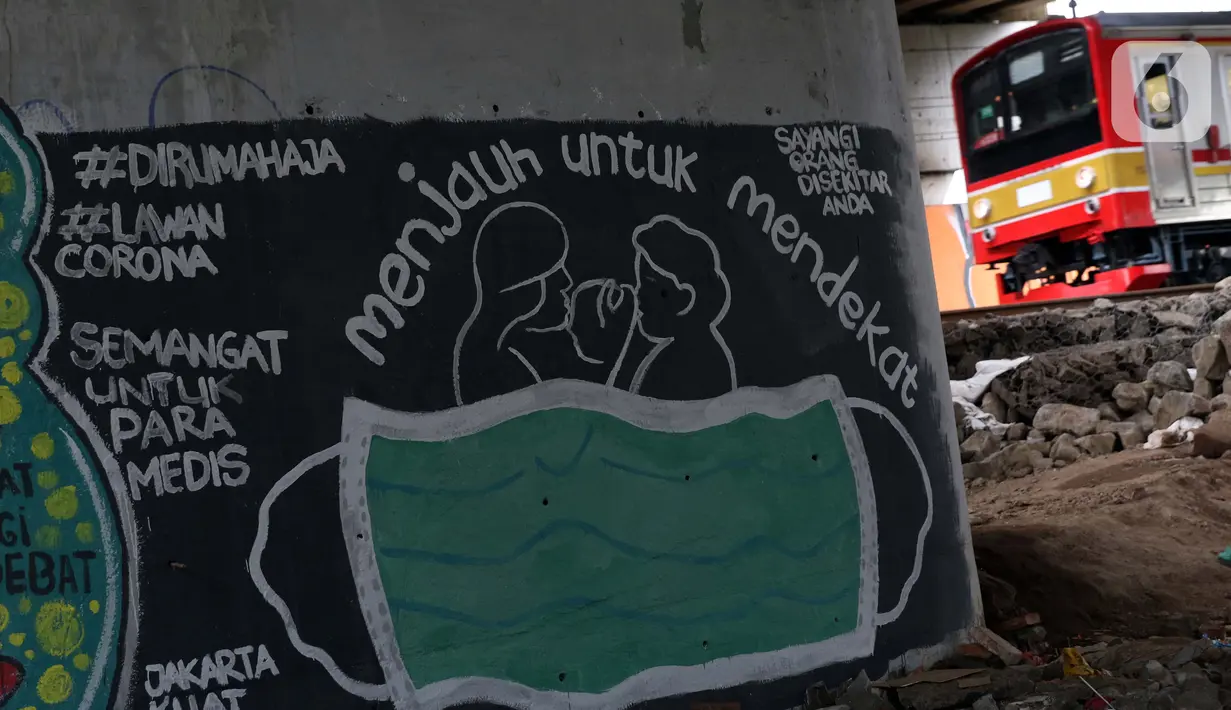 #DIRUMAHAJA
#LAWAN
CORONA
SEMANGAT
UNTUK
PARA
MEDIS
JAKARTA
KUAT
menjauh untuk mendekat
SAYANGI
ORANG
DISEKITAR
ANDA
6